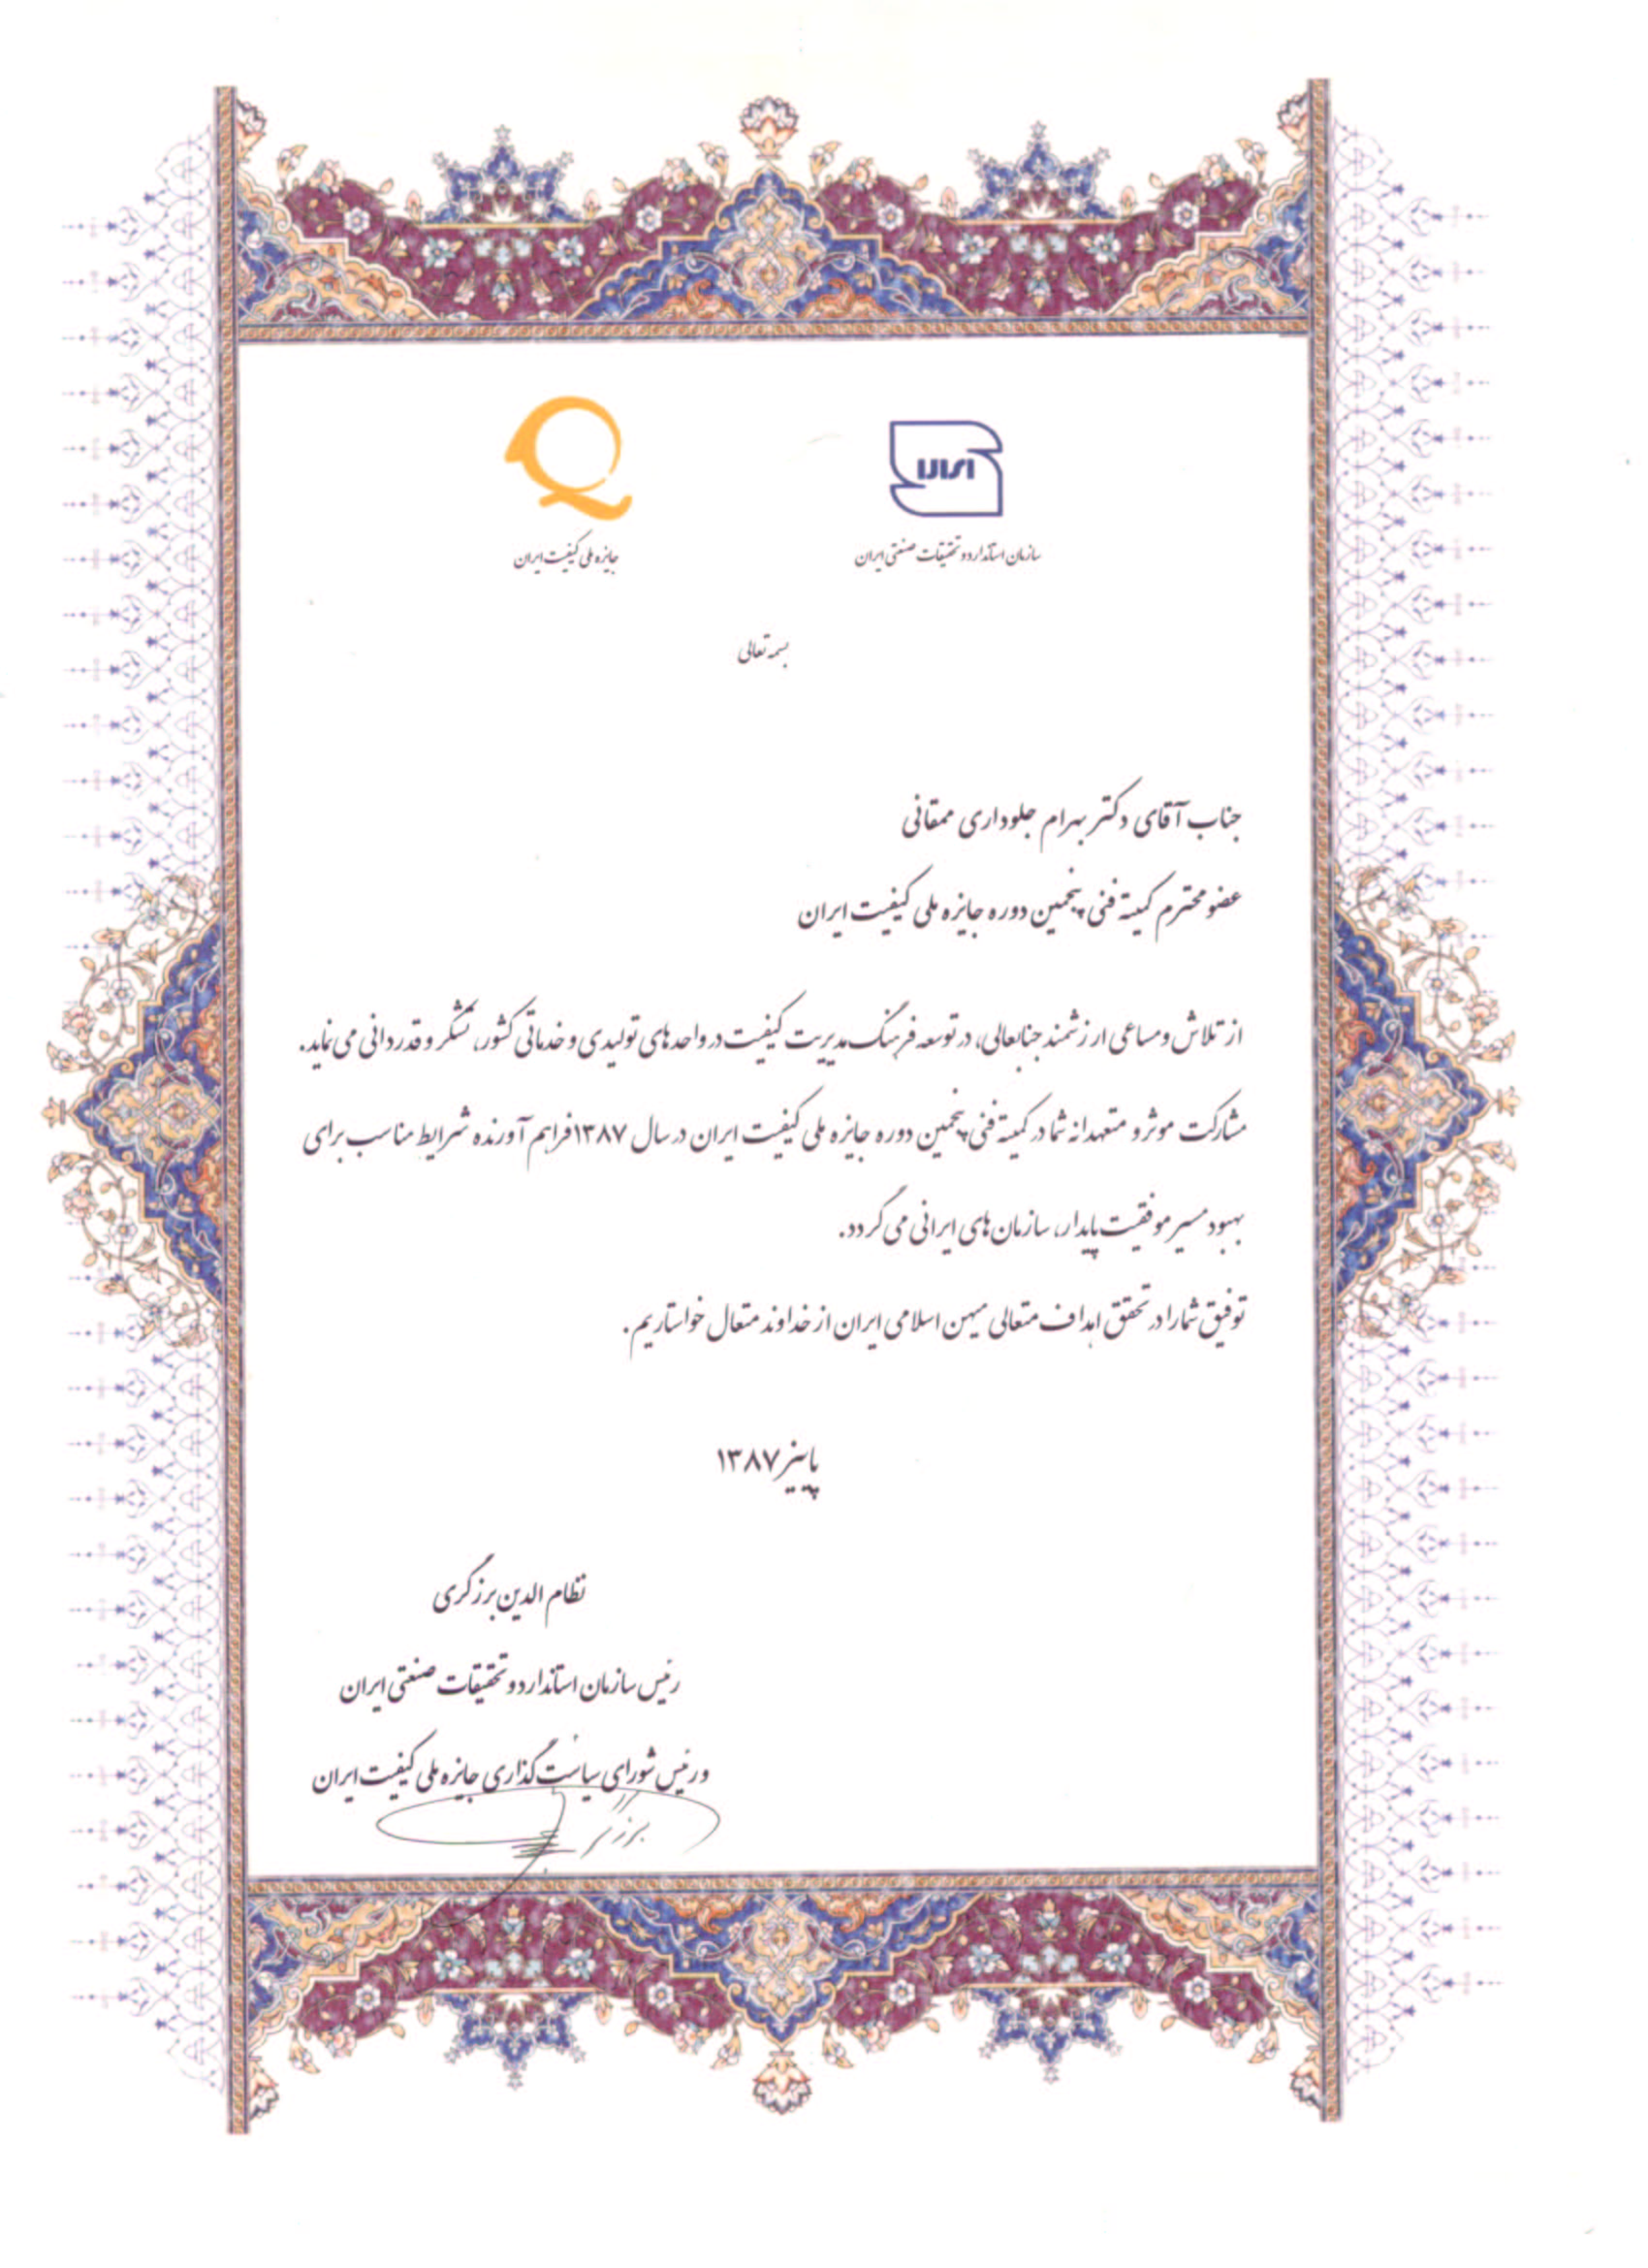 سازمان استاندارد و تحقیقات صنعتی ایران
جایزه ملی کیفیت ایران
بسمه تعالی
جناب آقای دکتر بهرام جلوداری ممقانی
عضو محترم کمیته فنی پنجمین دوره جایزه ملی کیفیت ایران
از تلاش و مساعی ارزشمند جنابعالی، در توسعه فرهنگ مدیریت کیفیت در واحدهای تولیدی و خدماتی کشور، تشکر و قدردانی می نماید.
مشارکت موثر و متعهدانه شما در کمیته فنی پنجمین دوره جایزه ملی کیفیت ایران در سال ۱۳۸۷ فراهم آورنده شرایط مناسب برای
بهبود مسیر موفقیت پایدار، سازمان های ایرانی می گردد.
توفیق شما را در تحقق اهداف متعالی میهن اسلامی ایران از خداوند متعال خواستاریم.
پاییز ۱۳۸۷
نظام الدین برزگری
رئیس سازمان استاندارد و تحقیقات صنعتی ایران
و رئیس شورای سیاست گذاری جایزه ملی کیفیت ایران